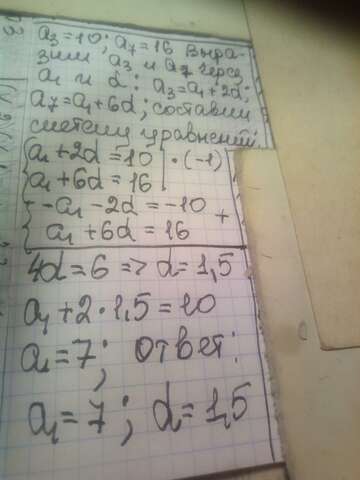 a₃ = 10; a₇ = 16 выра-
зим a₃ и a₇ через
a₁ и d: a₃ = a₁ + 2d;
a₇ = a₁ + 6d; составим
систему уравнений
{ a₁ + 2d = 10 | · (-1)
{ a₁ + 6d = 16
{ -a₁ - 2d = -10 +
{ a₁ + 6d = 16
4d = 6 => d = 1,5
a₁ + 2 · 1,5 = 10
a₁ = 7; ответ:
a₁ = 7; d = 1,5